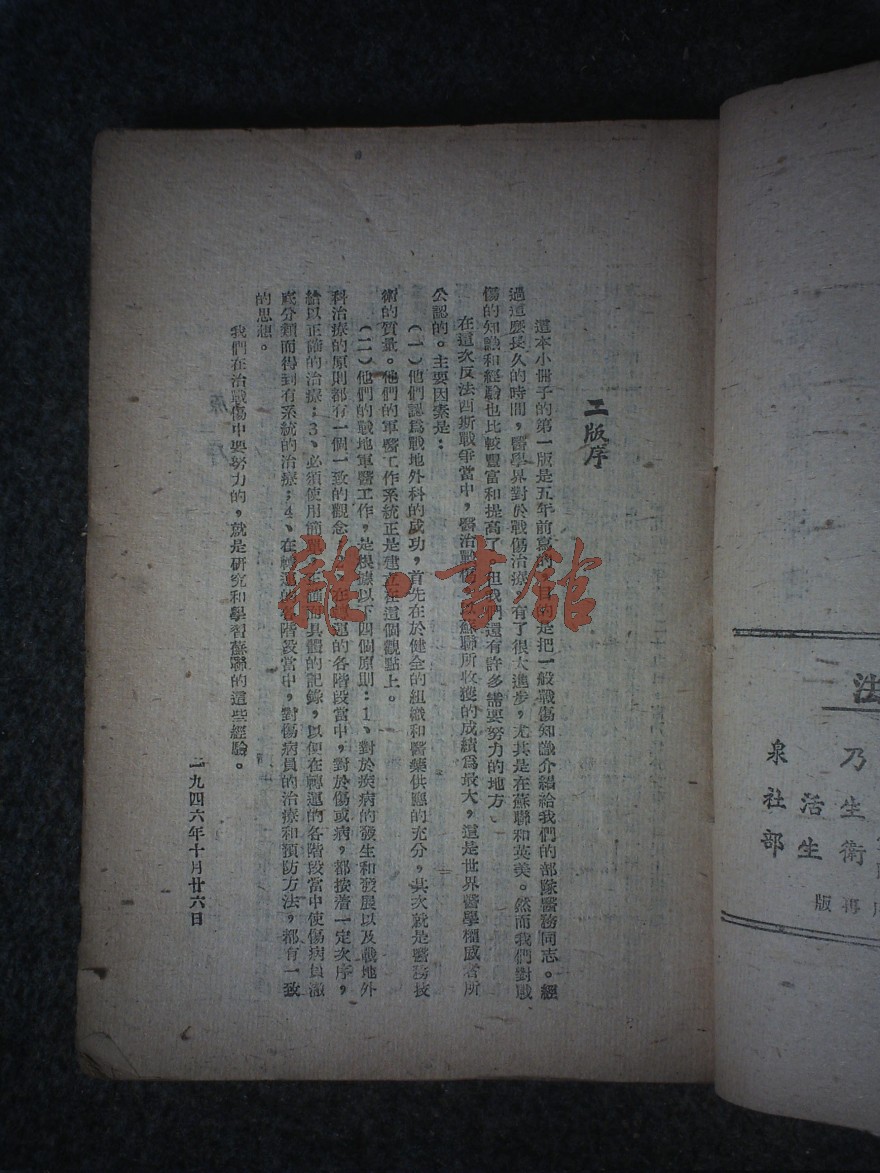 二版序
這本小冊子的第一版是五年前寫的，目的是把一般戰傷知識介紹給我們的部隊醫務同志。經
過這麼長久的時間，醫學界對於戰傷治療，有了很大進步，尤其是在蘇聯和英美。然而我們對戰
傷的知識和經驗也比較豐富和提高了，但我們還有許多需要努力的地方。
在這次反法西斯戰爭當中，醫治戰傷，以蘇聯所收獲的成績爲最大，這是世界醫學權威者所
公認的。主要因素是：
（一）他們認爲戰地外科的成功，首先在於健全的組織和醫藥供應的充分，其次就是醫務技
術的質量。他們的軍醫工作系統正是建立在這個觀點上。
（二）他們的戰地軍醫工作，是根據以下四個原則：1、對於疾病的發生和發展以及戰地外
科治療的原則都有一個一致的觀念；2、在轉運的各階段當中，對於傷或病，都按着一定次序，
給以正確的治療；3、必須使用簡單、正確而具體的記錄，以便在轉運的各階段當中使傷病員澈
底分類而得到有系統的治療；4、在轉運的各階段當中，對傷病員的治療和預防方法，都有一致
的思想。
我們在治戰傷中要努力的，就是研究和學習蘇聯的這些經驗。
一九四六年十月廿六日
雜·書館
法
乃
泉
活生
社
生衛
部
再版